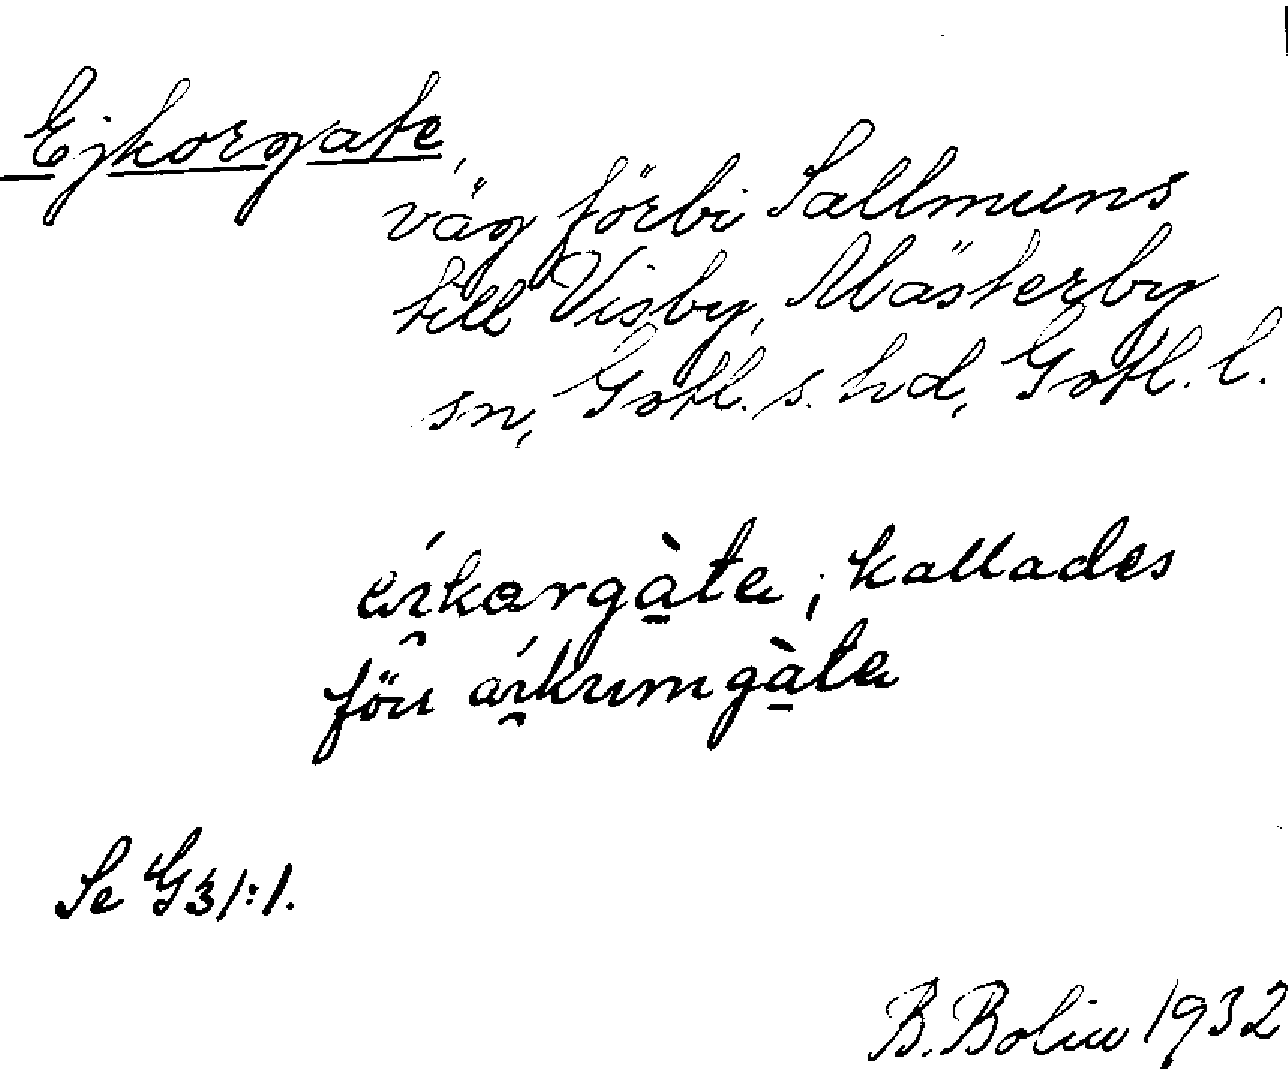 Ejkorgate,
väg förbi Sallmuns
till Visby, Mästerby
sn, Gotl. s. hd, Gotl. l.
kallades
förr
Se G31:1.
B. Bolin 1932